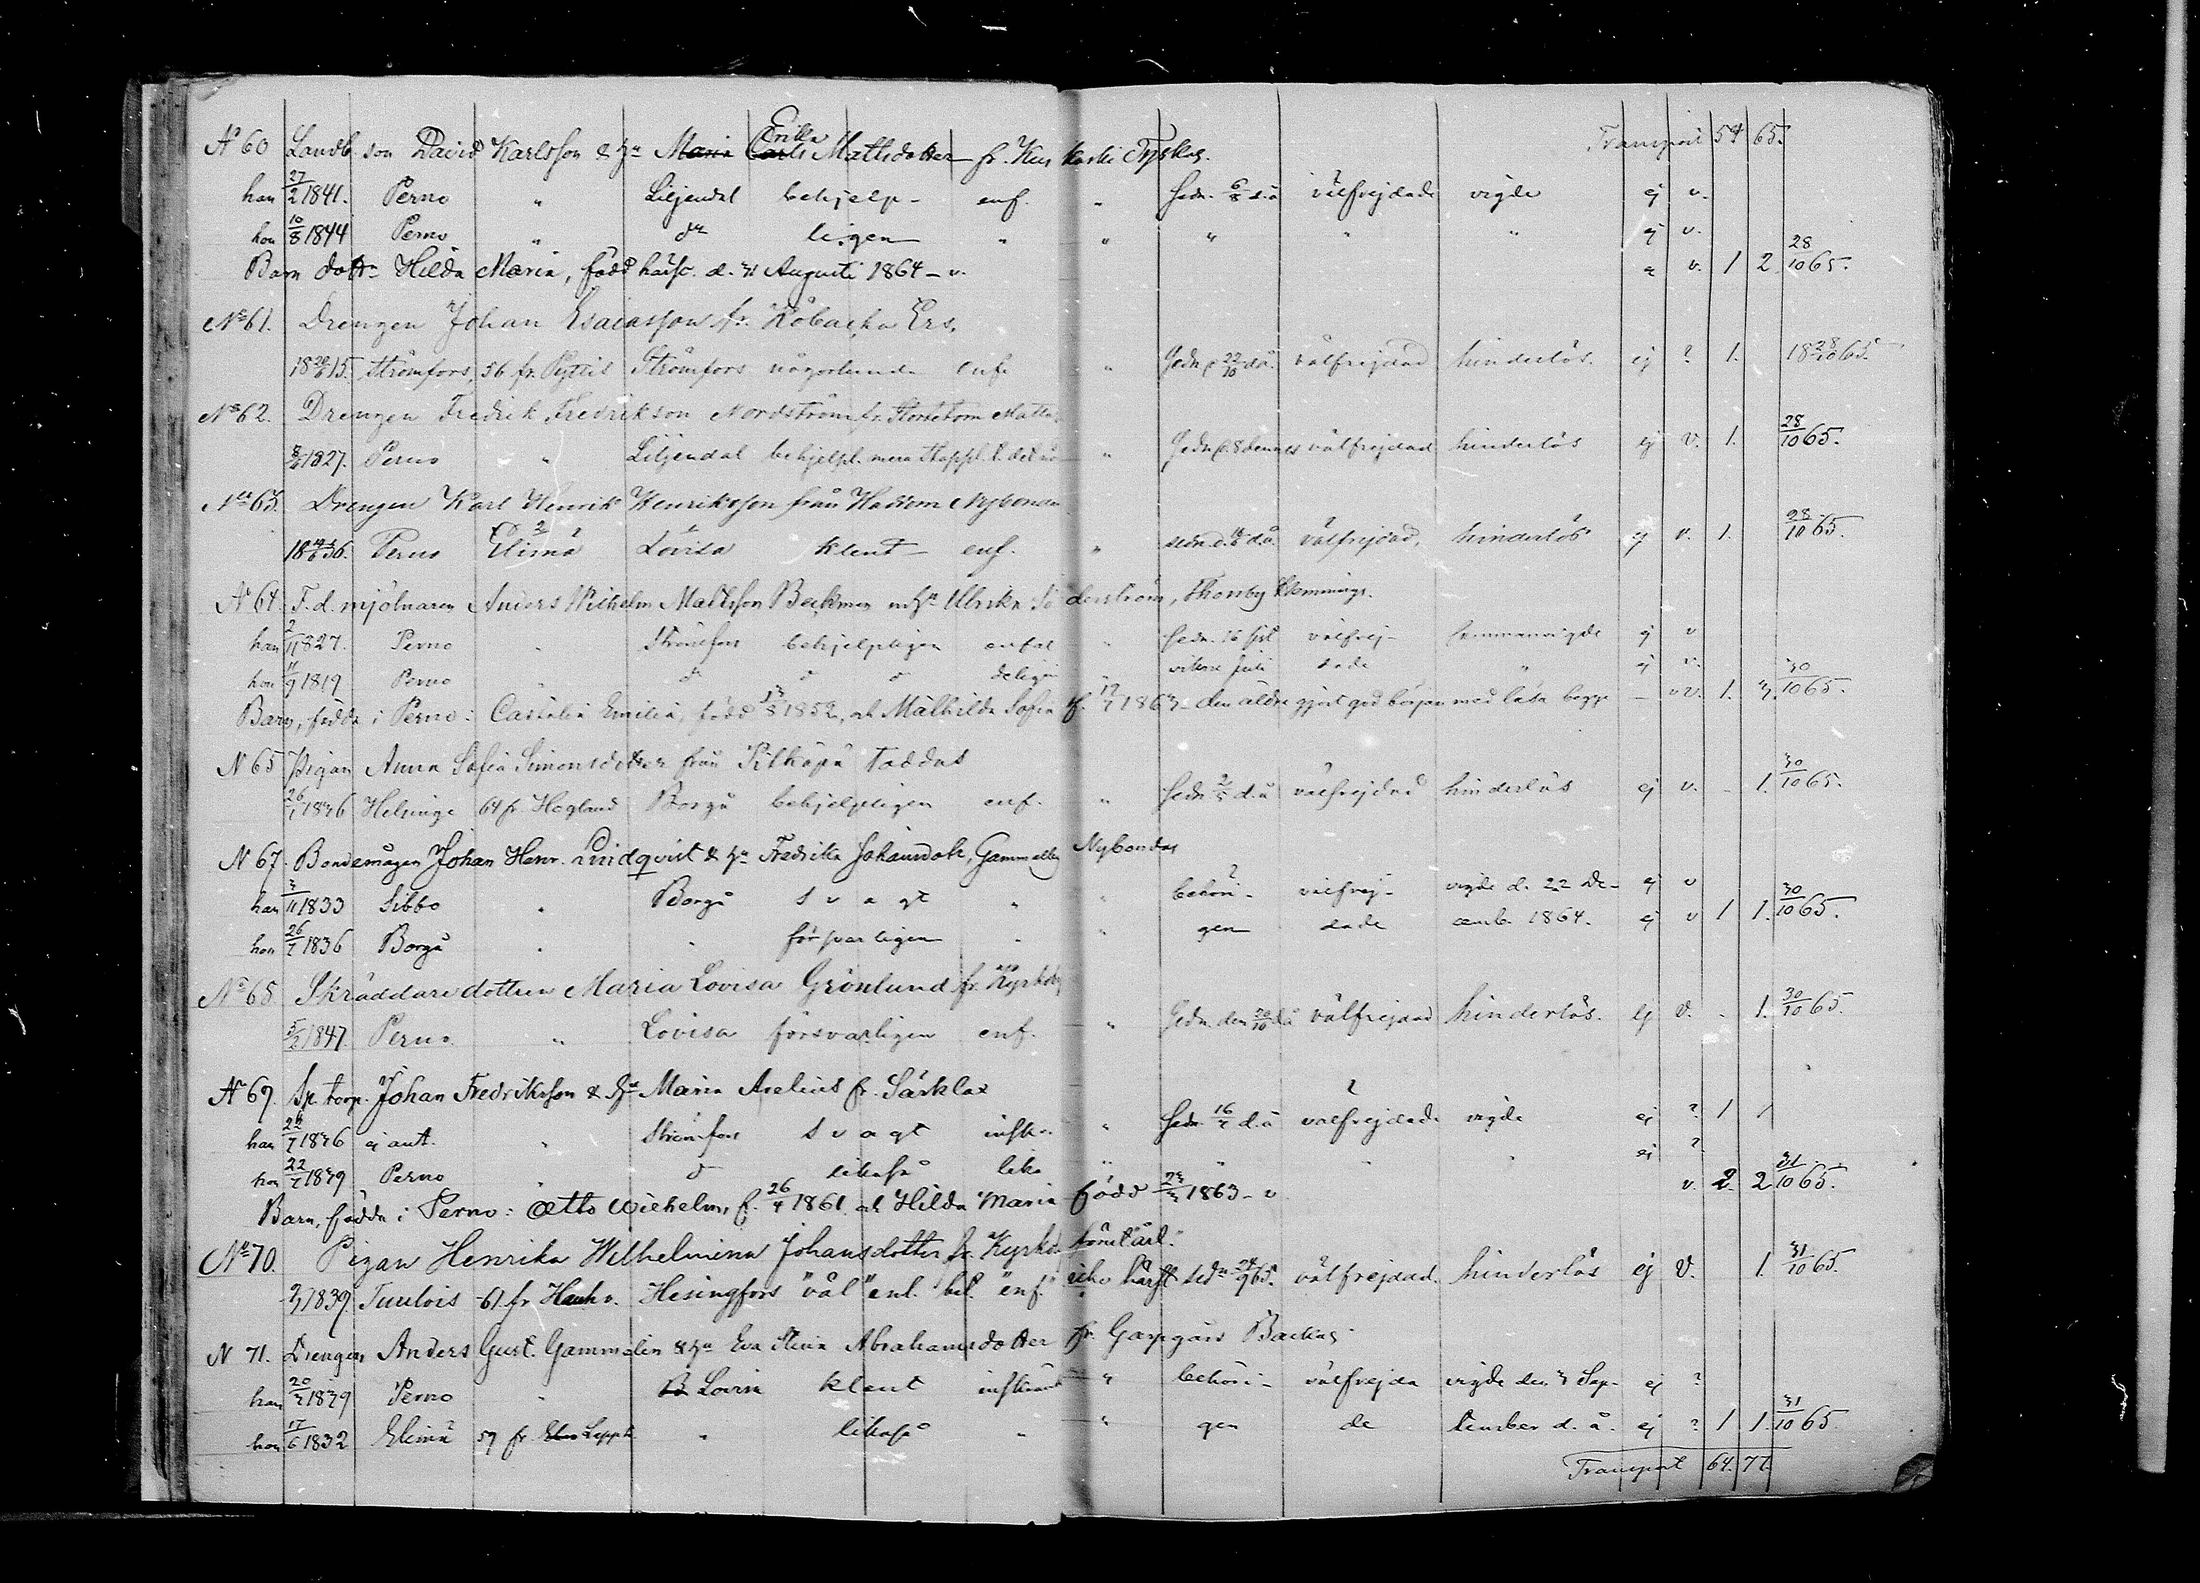 Transport 54 65.
N 60 Landb. son David Karlsson & h. Maria Carls Erika Mattsdotter fr. Kuskoski Tyskas.
han 27/2 1841. Perno " Liljendal behjelp- enf. " sedn. 6/8 d.å välfrejdade vigde ej v.
hon 10/8 1844 Perno " d:o ligen " " " " " ej v.
Barn dottr Hilda Maria, född härst. d. 31 Augusti 1864 - v. " v. 1 2 28/10 65.
No 61. Drengen Johan Esaiasson fr. Kobacka Ers.
1815. Strömfors, 56 fr. Pyttis Strömfors någorlunda enf. " sedn 22/10 d.å. välfrejdad hinderlös. ej ? 1. 18 28/10 65.
No 62. Drengen Fredrik Fredrikson Nordström fr. Matts.
1827. Perno " Liljendal behjelpl. " välfrejdad hinderlös ej v. 1. 28/10 65.
No 63. Drengen Karl Henrik Henriksson från Hardom Nybondas
1836. Perno Elimä Lovisa klent enf. " sedn. d.å. välfrejdad, hinderlös ej v. 1. 28/10 65.
N 64. F.d. mjölnaren Anders Wilhelm Mattsson Beckman m h. Ulrika Söderström, Thorsby Klemmings.
han 2/11 1827. Perno " Strömfors behjelpligen enfal " sedn. 16 välfrej- sammanvigde ej v
hon 11/9 1819 Perno " d d d deligen " dade " ej v.
Barn, födda i Perno: Emilia, född 13/8 1852, och Mathilda Sofia f. 12/7 1863 - den äldre gjort god början med läsa begge - v v. 1. 3. 30/10 65.
N 65 Pigan Anna Sofia Simonsdotter från Pitkäpä Taddas
26/1 1836 Helsinge 64 fr. Hogland Borgå behjelpligen enf. " sedn. d.å välfrejdad hinderlös ej v. - 1. 30/10 65.
N 67. Bondemågen Johan Henr. Lindqvist & h. Fredrika Johansdotr, Gammelby Nybondas
han 3/11 1833 Sibbo " Borgå s v a g t " " behöri- välfrej- vigde d. 22 De- ej v
hon 26/7 1836 Borgå " " försvarligen " " gen dade cemb. 1864. ej v 1 1. 30/10 65.
No 68. Skräddaredottren Maria Lovisa Grönlund fr. Kyrkoby
5/2 1847. Perno. " Lovisa försvarligen enf. " sedn. den 20/10 d.å välfrejdad hinderlös. ej v. - 1. 30/10 65.
N 69. Sp. torp. Johan Fredriksson & h. Maria Aselius fr. Särklax
han 1836 ej ant. " Strömfors s v a g t inskr. " sedn. 16/4 d.å välfrejdade vigde ej ? 1 1
hon 22/7 1839 Perno " d likaså lika " " " " ej ?
Barn, födda i Perno: Otto Wilhelm, f. 26/4 1861 och Hilda Maria född 23/3 1863 - v v. 2. 2 31/10 65.
No 70. Pigan Henrika Wilhelmina Johansdotter fr. Kyrkoby
1839 Tuulois 61 fr. Hauho. Hesingfors "väl" enl. bet. "enf." härst. sedn 24/9 65. välfrejdad. hinderlös ej v. 1. 31/10 65.
N 71. Drengen Anders Gust. Gammelin & h. Eva Stina Abrahamsdotter fr. Garpgård Backas.
han 20/3 1839 Perno " Lovisa klent inskränkt " behöri- välfrejda vigde den 3 Sep- ej ?
hon 17/6 1832 Elimä 59 fr. " likaså " " gen de tember d. å. ej ? 1 1. 31/10 65.
Transport 64. 77.